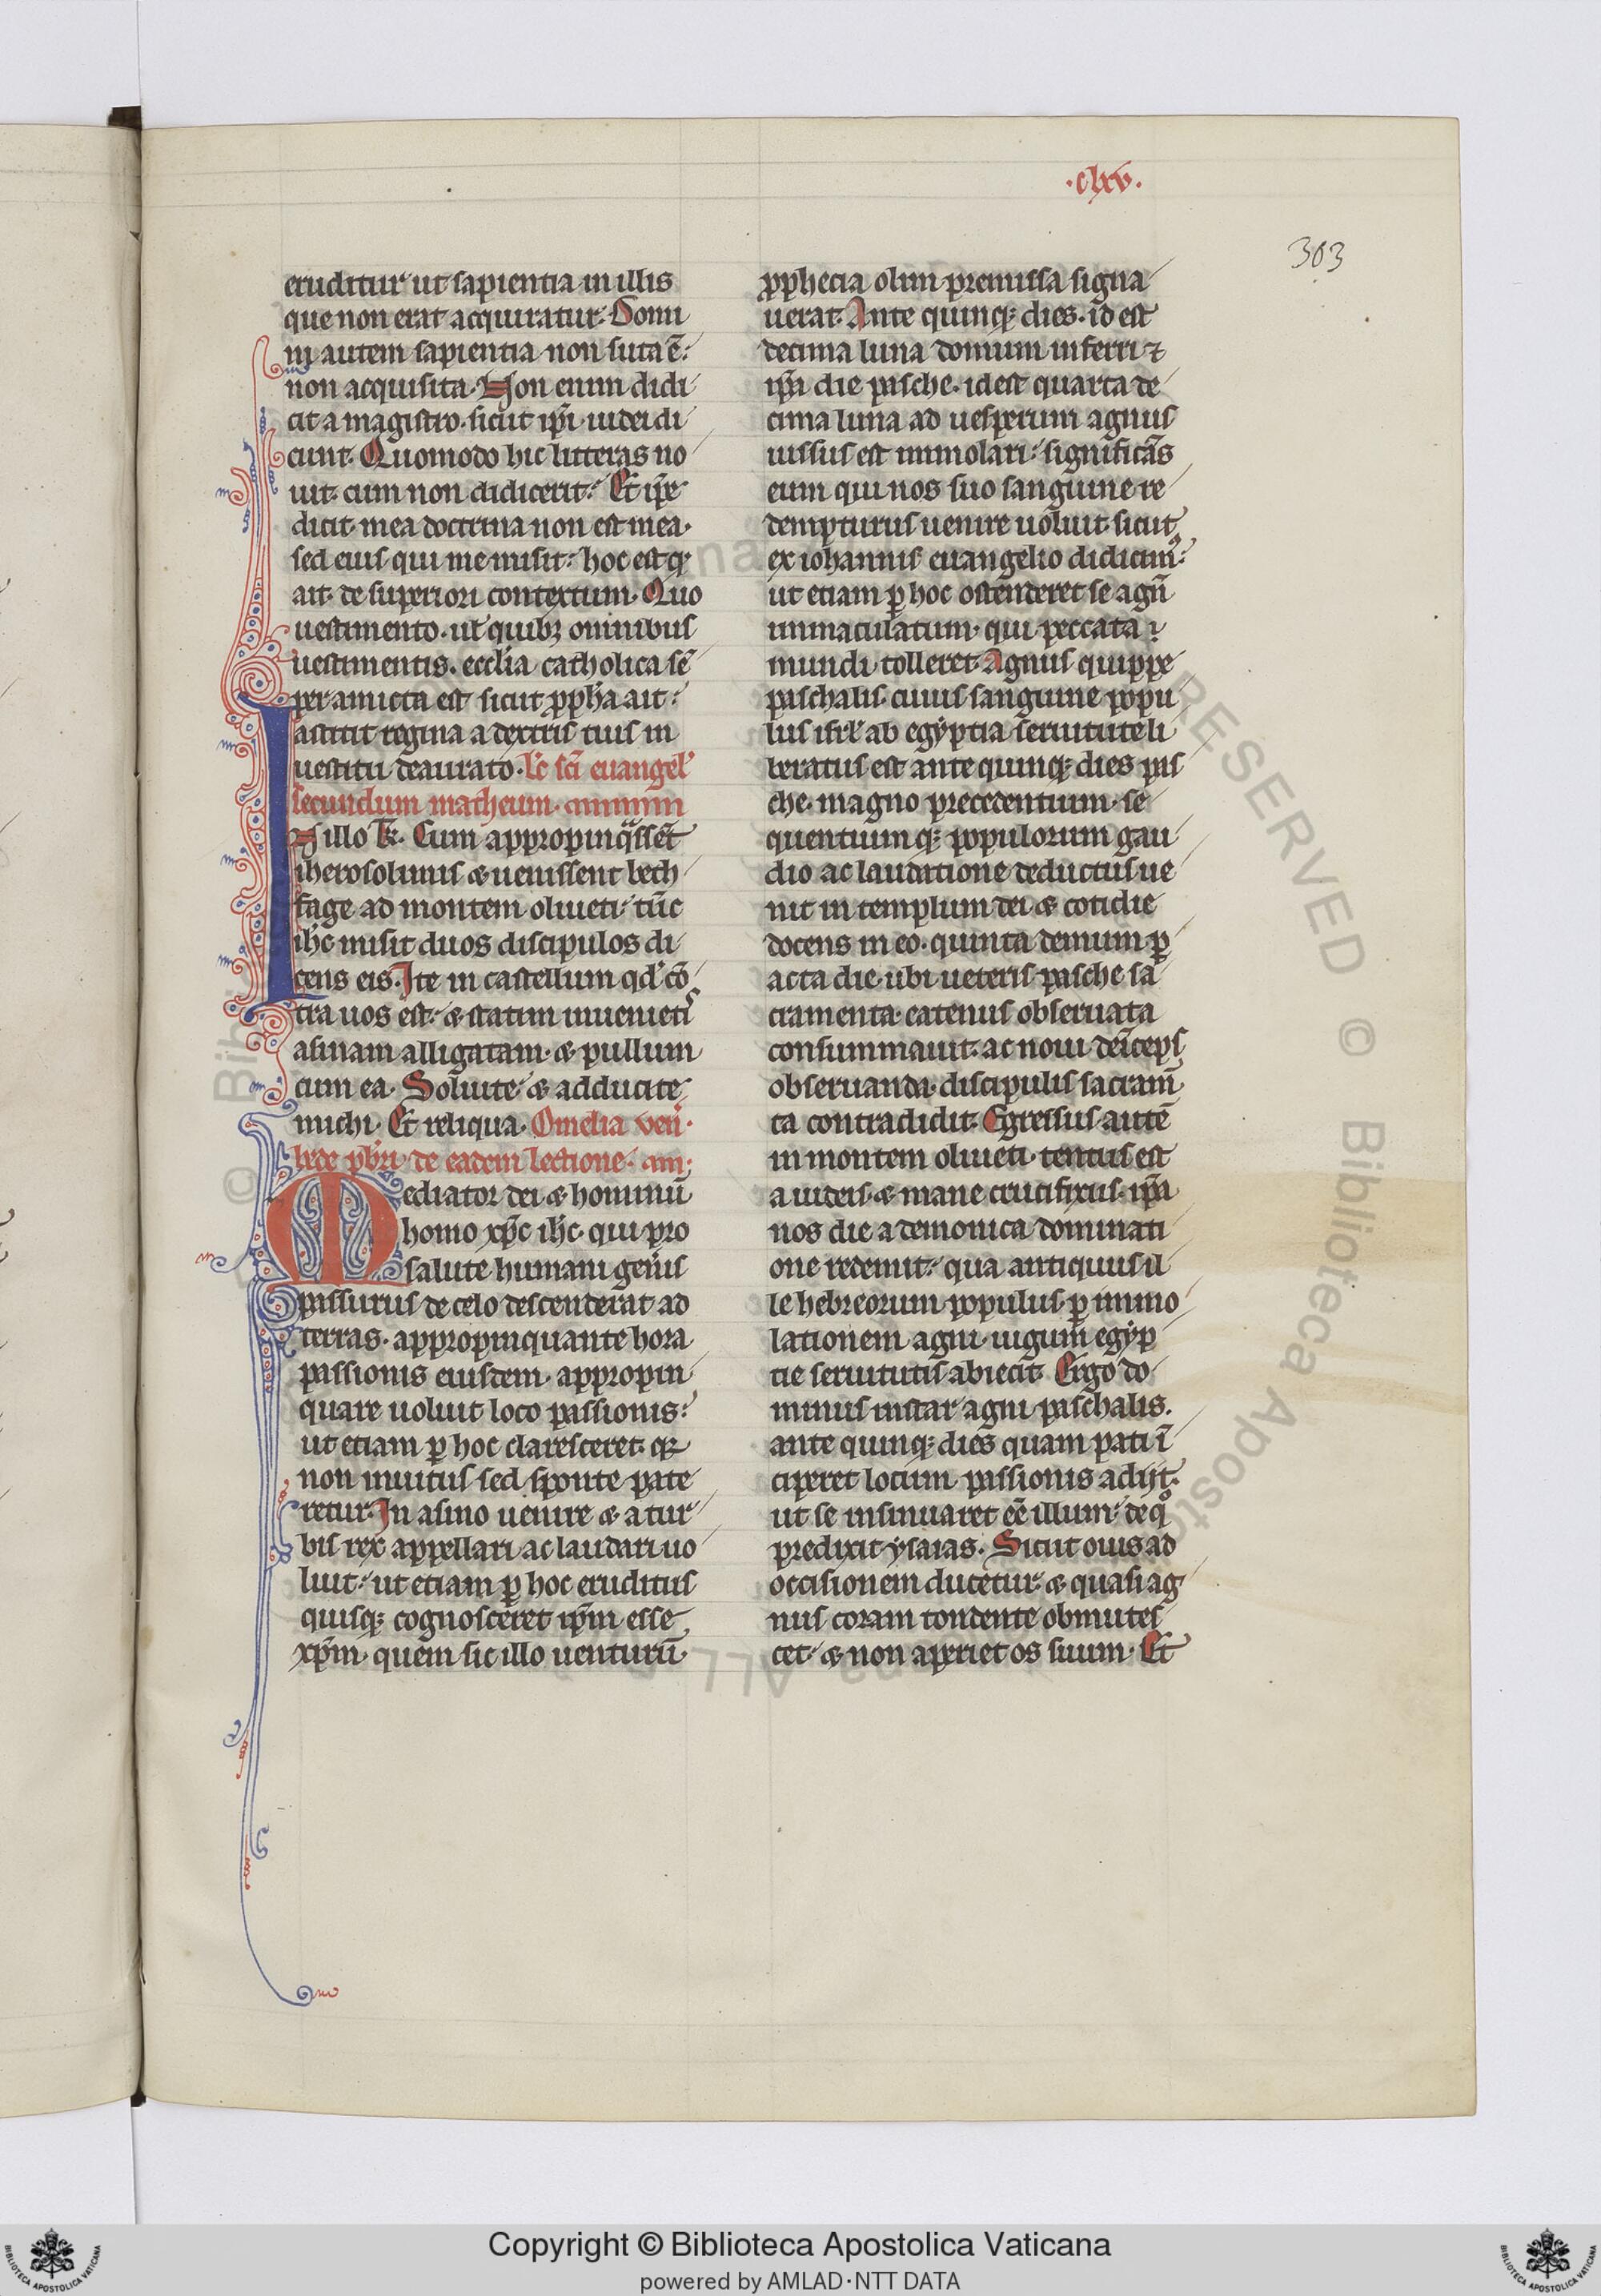 ·clxv·
303
eruditur ut sapientia in illis
que non erat acquiratur. Domi
ni autem sapientia non suta ē:
non acquisita. Non enim didi
cit a magistro. sicut ip̄i iudei di
cunt. Quomodo hic litteras no
uit. cum non didicerit: Et ip̄e
dicit. mea doctrina non est mea.
sed eius qui me misit: hoc est qͥ
ait. de superiori contextum. Quo
uestimento. uł quibꝫ omnibus
uestimentis. ecc̄lia catholica sē
per amicta est sicut ꝓph̄a ait:
astitit regina a dextris tuis in
uestitu deaurato. Lc̄ sc̄i euangel'
secundum matheum.
IN illo t̄r. Cum appropinq̄ssēt
iherosolimis & uenissent beth
fage ad montem oliueti. tūc
ih̄c misit duos discipulos di
cens eis. Ite in castellum qd' cō
tra uos est: & statim inuenietis
asinam alligatam. & pullum
cum ea. Soluite. & adducite
michi. Et reliqua. Omelia ven̄.
bede p̄bri de eadem lectione.
Mediator dei & hominū
homo xp̄c ih̄c. qui pro
salute humani gen̄is
passurus de celo descenderat ad
terras. appropinquante hora
passionis eiusdem. appropin
quare uoluit loco passionis:
ut etiam ꝑ hoc claresceret. qꝛ
non inuitus sed sponte pate
retur. In asino uenire & a tur
bis rex appellari ac laudari uo
luit: ut etiam ꝑ hoc eruditus
quisqꝫ cognosceret ip̄m esse
xp̄m. quem sic illo uenturū.
ꝓphecia olim premissa signa
uerat. Ante quinqꝫ dies. id est
decima luna domum inferri ⁊
ip̄a die pasche. id est quarta de
cima luna ad uesperum agnus
iussus est immolari: significās
eum qui nos suo sanguine re
dempturus uenire uoluit. sicut
ex iohannis euangelio didicim᷒:
ut etiam ꝑ hoc ostenderet se agn̄
immaculatum. qui peccata
mundi tolleret. Agnus quippe
paschalis. cuius sanguine popu
lus isrl' ab egyptia seruitute li
beratus est ante quinqꝫ dies pas
che. magno precedentium. se
quentiumqꝫ populorum gau
dio ac laudatione deductus ue
nit in templum dei & cotidie
docens in eo. quinta demum ꝑ
acta die. ubi ueteris pasche sa
cramenta eatenus obseruata
consummauit. ac noui deīceps
obseruanda. discipulis sacram̄
ta contradidit. Egressus autē
in montem oliueti. tentus est
a iudeis. & mane crucifixus. ip̄a
nos die a demonica dominati
one redemit: qua antiquus il
le hebreorum populus. ꝑ immo
lationem agni. iugum egyp
tie seruitutis abiecit. Ergo do
minus instar agni paschalis.
ante quinqꝫ dies quam pati ī
ciperet locum passionis adijt.
ut se insinuaret eē illum: de qͦ
predixit ysaias. Sicut ouis ad
occisionem ducetur. & quasi ag
nus coram tondente obmutes
cet. & non aperiet os suum. Et
Copyright © Biblioteca Apostolica Vaticana
powered by AMLAD·NTT DATA